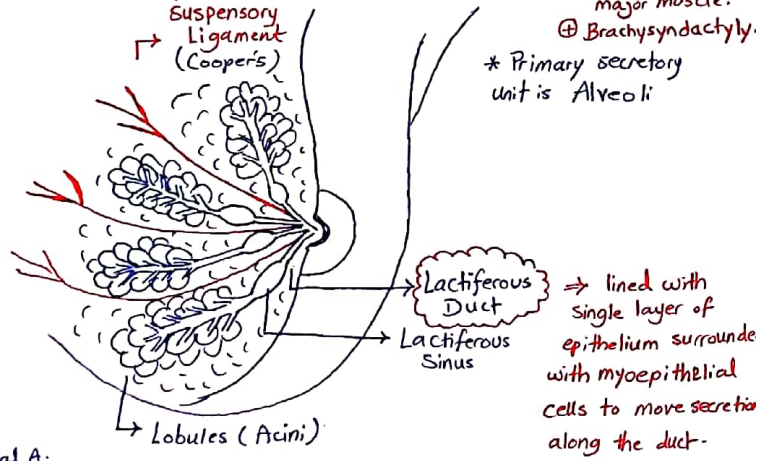 Suspensory
Ligament
(Cooper's)
major muscle.
⊕ Brachysyndactyly.
* Primary secretory
unit is Alveoli
Lactiferous
Duct
⇒ lined with
single layer of
epithelium surrounde
with myoepithelial
cells to move secretio
along the duct.
Lactiferous
Sinus
Lobules (Acini)
al A.